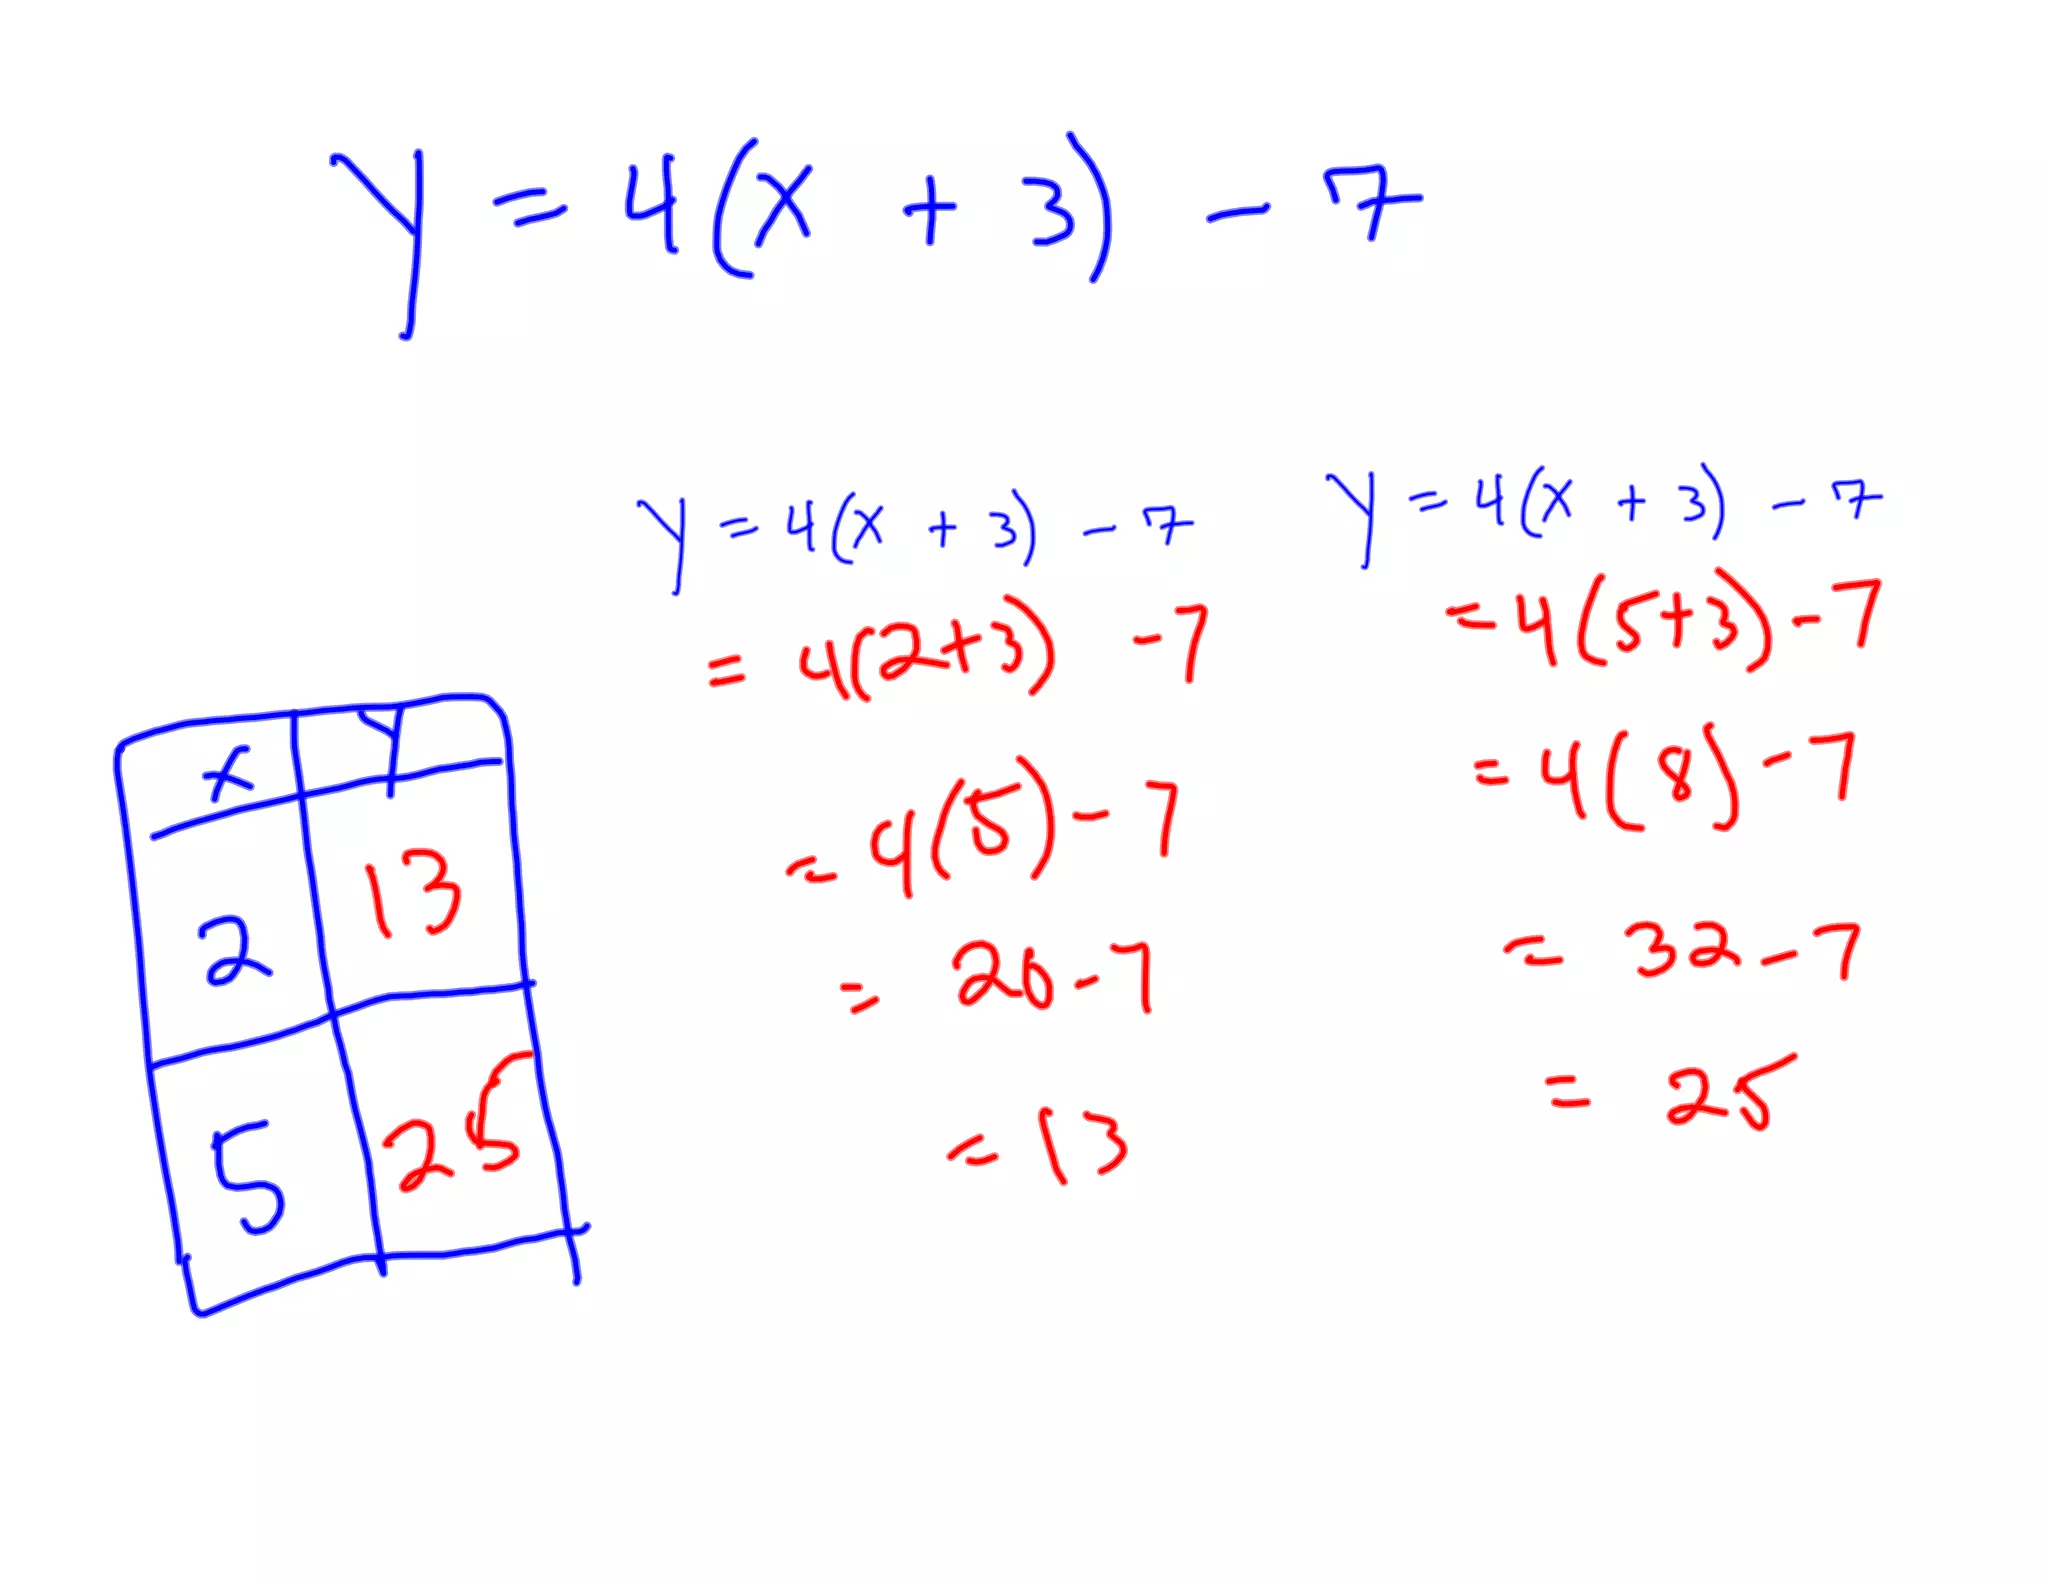 y = 4(x + 3) - 7
y = 4(x + 3) - 7
= 4(2+3) - 7
= 4(5) - 7
= 20 - 7
= 13
y = 4(x + 3) - 7
= 4(5+3) - 7
= 4(8) - 7
= 32 - 7
= 25
x y
2 13
5 25